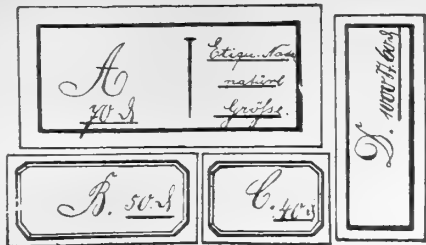 A
70 ₰
Etiqu. Nadel
natürl
Größse.
B. 50 ₰
C. 40 ₰
D. 1000 St. 60 ₰